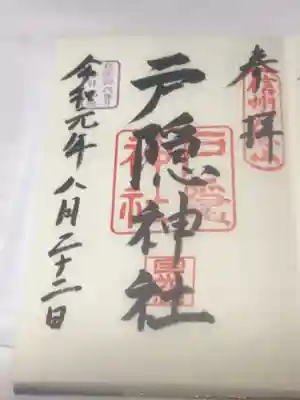 奉拝
戸隠神社
戸隠
神社
令和元年八月二十二日